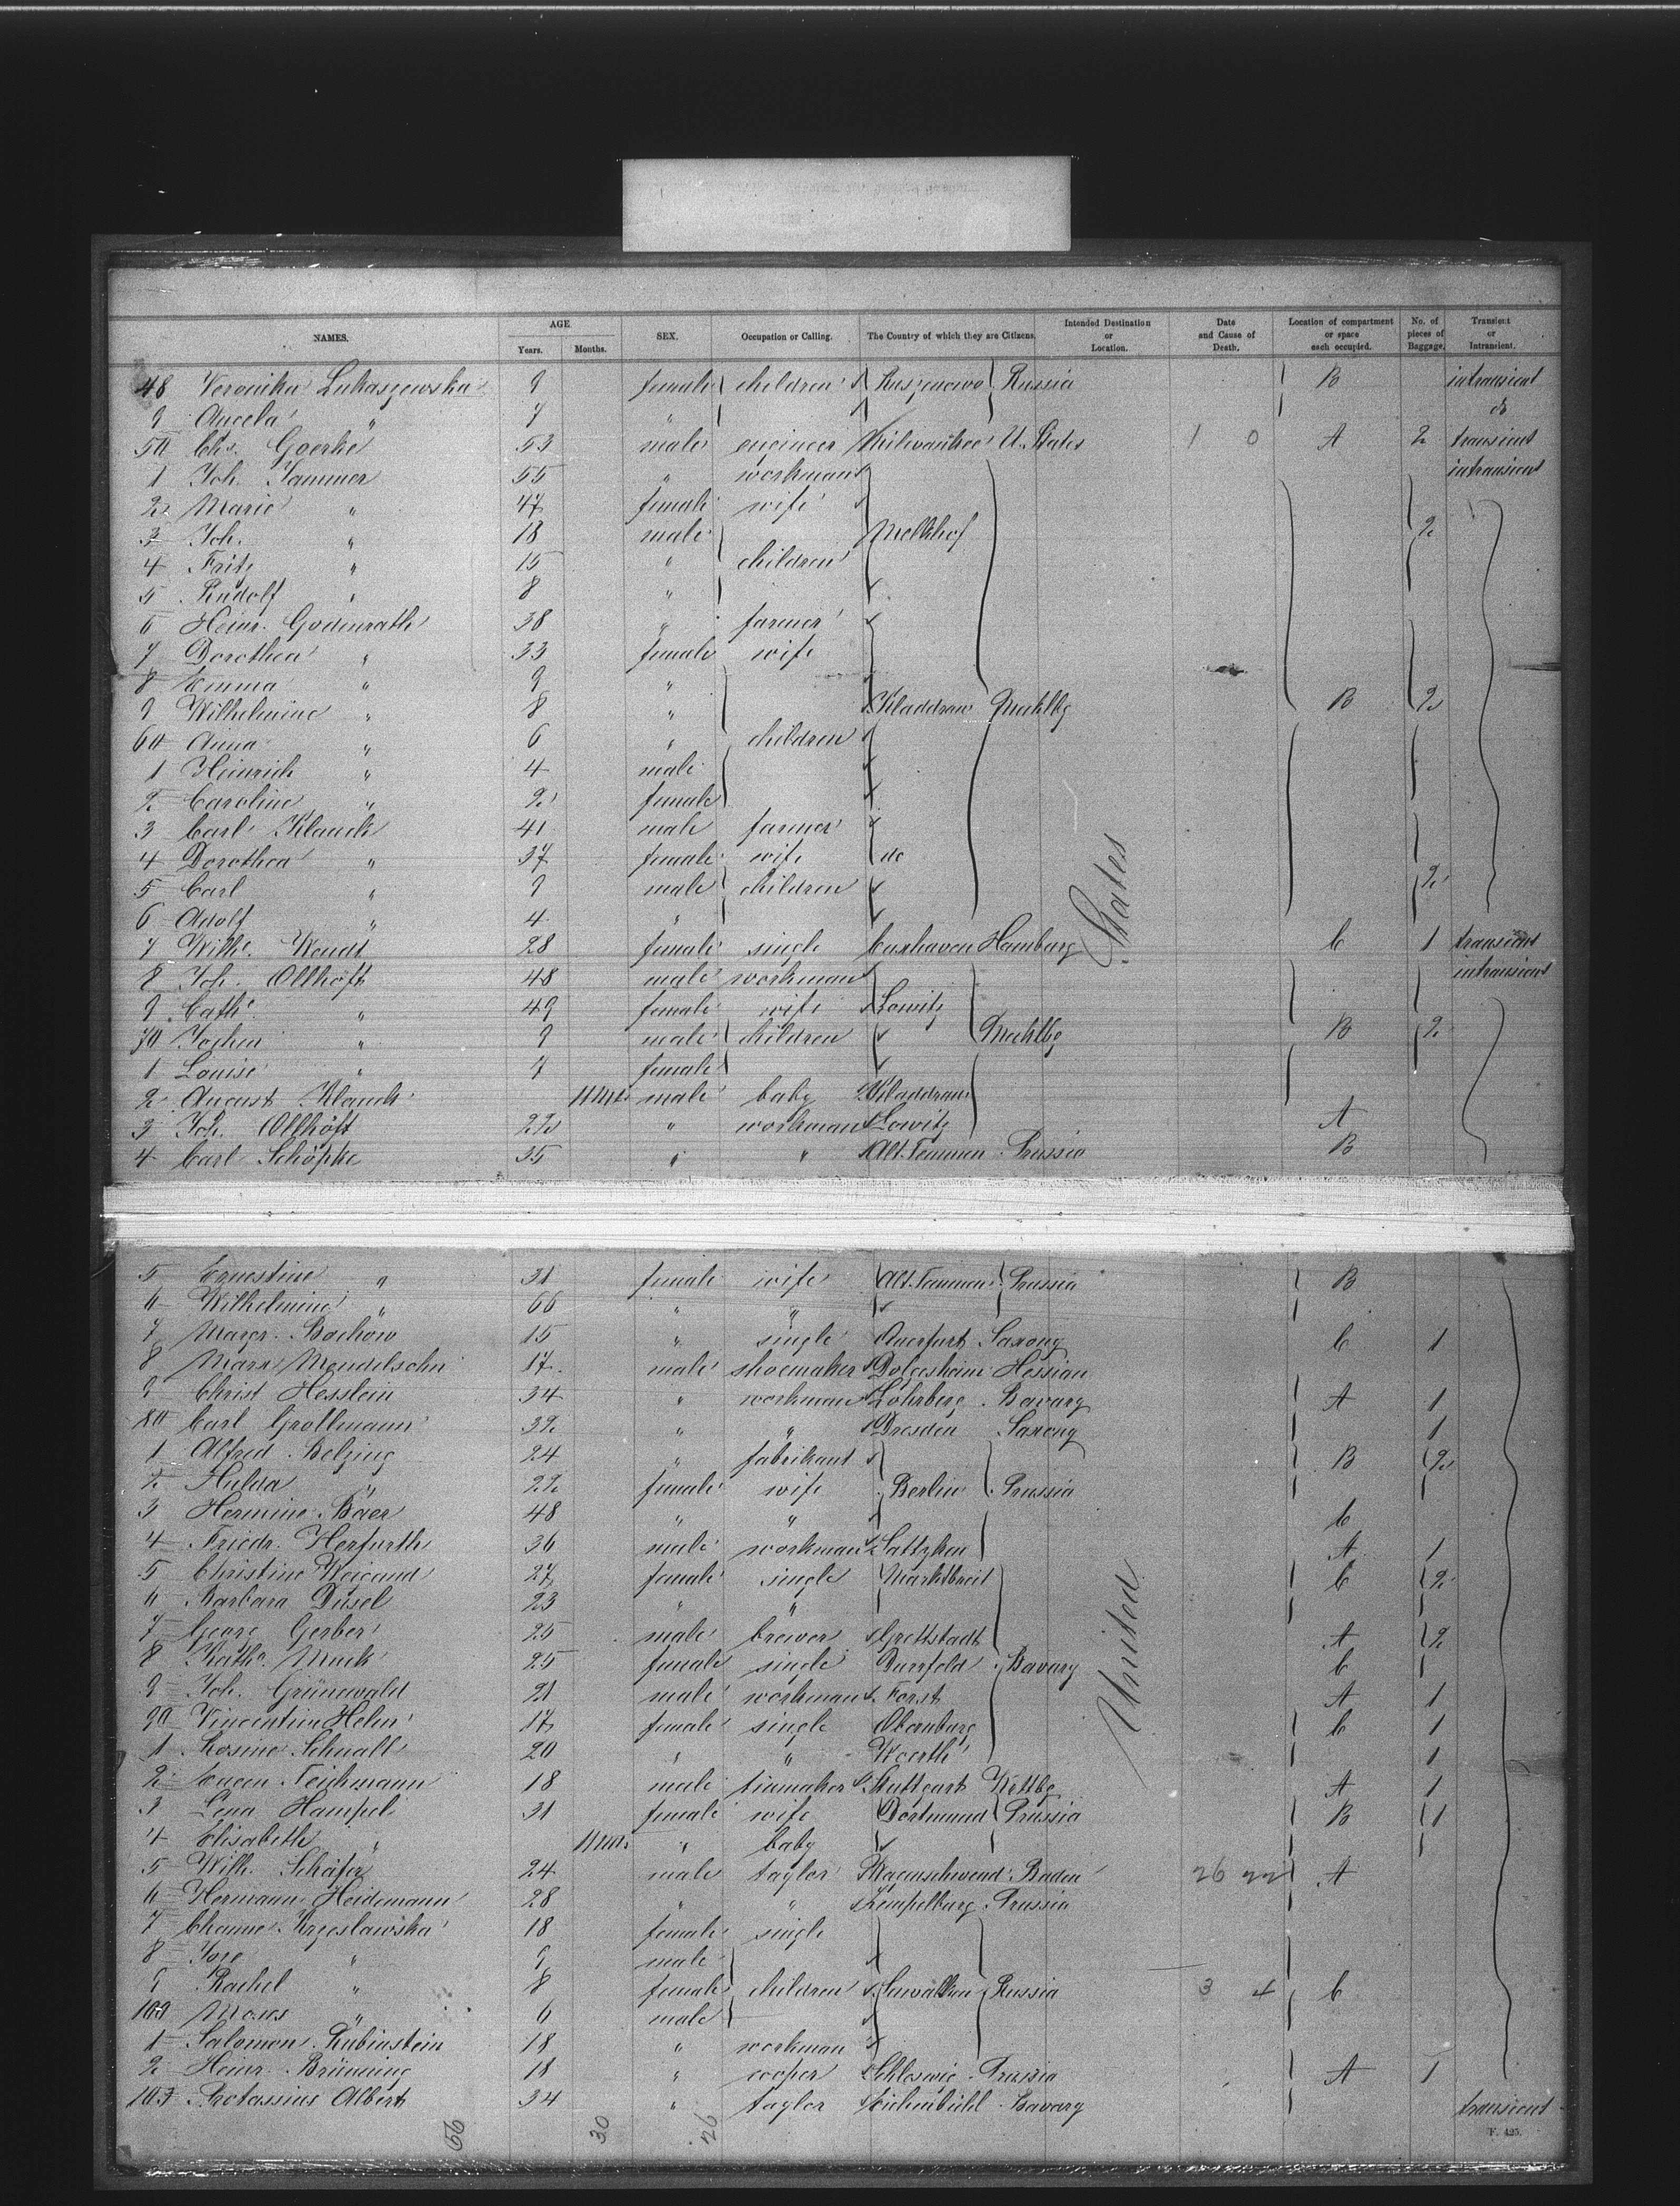 NAMES. AGE Years. Months. SEX. Occupation or Calling. The Country of which they are Citizens. Intended Destination or Location. Date and Cause of Death. Location of compartment or space each occupied. No. of pieces of Baggage. Transient or Intransient.
48 Veronika Lukaszewska 9 female children Russia B intransient
9 " 7 " do
50 Chs. Goerke 53 male engineer Milwaukee U. States 1 0 A 2 transient
1 Joh. Jammer 55 " workman intransient
2 Marie " 47 female wife
3 Joh. " 18 male Melkhof 2
4 Fritz " 15 " children
5 Rudolf " 8 "
6 Heinr. Godenrath 38 " farmer
7 Dorothea " 33 female wife
8 Emma " 9 "
9 Wilhelmine " 8 " Kladdrow Mecklbg B 2
60 Anna " 6 " children
1 Heinrich " 4 male
2 Caroline " 2 female
3 Carl Klauck 41 male farmer
4 Dorothea " 37 female wife do
5 Carl " 9 male children 2
6 Adolf " 4 "
7 Wilhe. Wendt 28 female single Cuxhaven Hamburg C 1 transient
8 Joh. Ollhöft 48 male workman intransient
9 Cathe. " 49 female wife Lowitz
70 Jochen " 9 male children Mecklbg B 2
1 Louise " 7 female
2 August Klauck 11 mts male baby Kladdrow
3 Joh. Ollhöft 22 " workman Lowitz A
4 Carl Schöpke 35 " " Alt. Temmen Prussia B
States
5 Ernestine " 31 female wife Alt. Temmen Prussia B
6 Wilhelmine " 66 " "
7 Margr. Bachow 15 " single Querfurt Saxony C 1
8 Marx Mendelsohn 17 male shoemaker Dolgesheim Hessian
9 Christ Hesslein 34 " workman Löhrberg Bavary A 1
80 Carl Grollmann 32 " " Dresden Saxony 1
1 Alfred Belzing 24 " fabrikant B 2
2 Hulda " 22 female wife Berlin Prussia
3 Hermine Baer 48 " " C
4 Friedr. Herfurth 36 male workman A 1
5 Christine Weigand 27 female single Marktbreit C 2
6 Barbara Düsel 23 " "
7 Georg Gerber 25 male brewer Grettstadt A 2
8 Kathe. Muck 25 female single Durrfeld Bavary C
9 Joh. Grünewald 21 male workman Forst A 1
90 Vincentine Helm 17 female single Obernburg C 1
1 Rosine Schnall 20 " " Woerth 1
2 Eugen Teichmann 18 male tinmaker Stuttgart Wttbg A 1
3 Lena Hampel 31 female wife Dortmund Prussia B 1
4 Elisabeth " 11 mts " baby
5 Wilh. Schäfer 24 male taylor Baden 26 22 A
6 Hermann Heidemann 28 " " Kempelburg Prussia
7 Channe Krzeslawska 18 female single
8 " 9 male
9 Rachel " 8 female children Suwalken Russia 3 4 C
100 Moses " 6 male
1 Salomon Rubinstein 18 " workman
2 Heinr. Brünning 18 " cooper Schleswig Prussia A 1
103 Protassius Albert 34 " taylor Eichenbühl Bavary transient
United
66 30 26
F. 425.